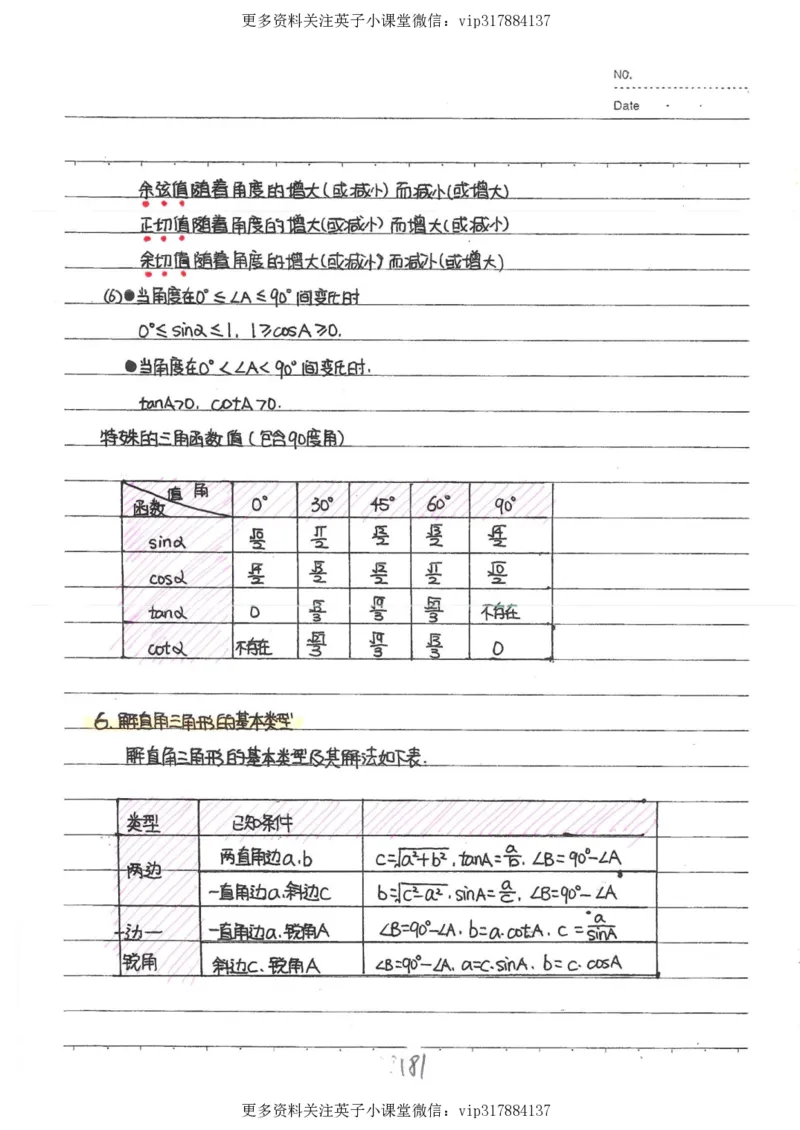 更多资料关注英子小课堂微信：vip317884137
NO.
Date
余弦值随着角度的增大(或减小)而减小(或增大)
正切值随着角度的增大(或减小)而增大(或减小)
余切值随着角度的增大(或减小)而减小(或增大)
(6)●当角度在0°≤∠A≤90°间变化时
0°≤sinα≤1, 1≥cosA≥0.
●当角度在0°<∠A<90°间变化时.
tanA>0, cotA>0.
特殊的三角函数值(包含90度角)
函数 值 角 0° 30° 45° 60° 90°
sinα √0/2 √1/2 √2/2 √3/2 √4/2
cosα √4/2 √3/2 √2/2 √1/2 √0/2
tanα 0 √3/3 √9/3 √27/3 不存在
cotα 不存在 √27/3 √9/3 √3/3 0
6.解直角三角形的基本类型
解直角三角形的基本类型及其解法如下表.
类型 已知条件
两边 两直角边a,b c=√a²+b², tanA=a/b, ∠B=90°-∠A
一直角边a,斜边c b=√c²-a², sinA=a/c, ∠B=90°-∠A
一边一 一直角边a,锐角A ∠B=90°-∠A, b=a·cotA, c=a/sinA
锐角 斜边c,锐角A ∠B=90°-∠A, a=c·sinA, b=c·cosA
181
更多资料关注英子小课堂微信：vip317884137